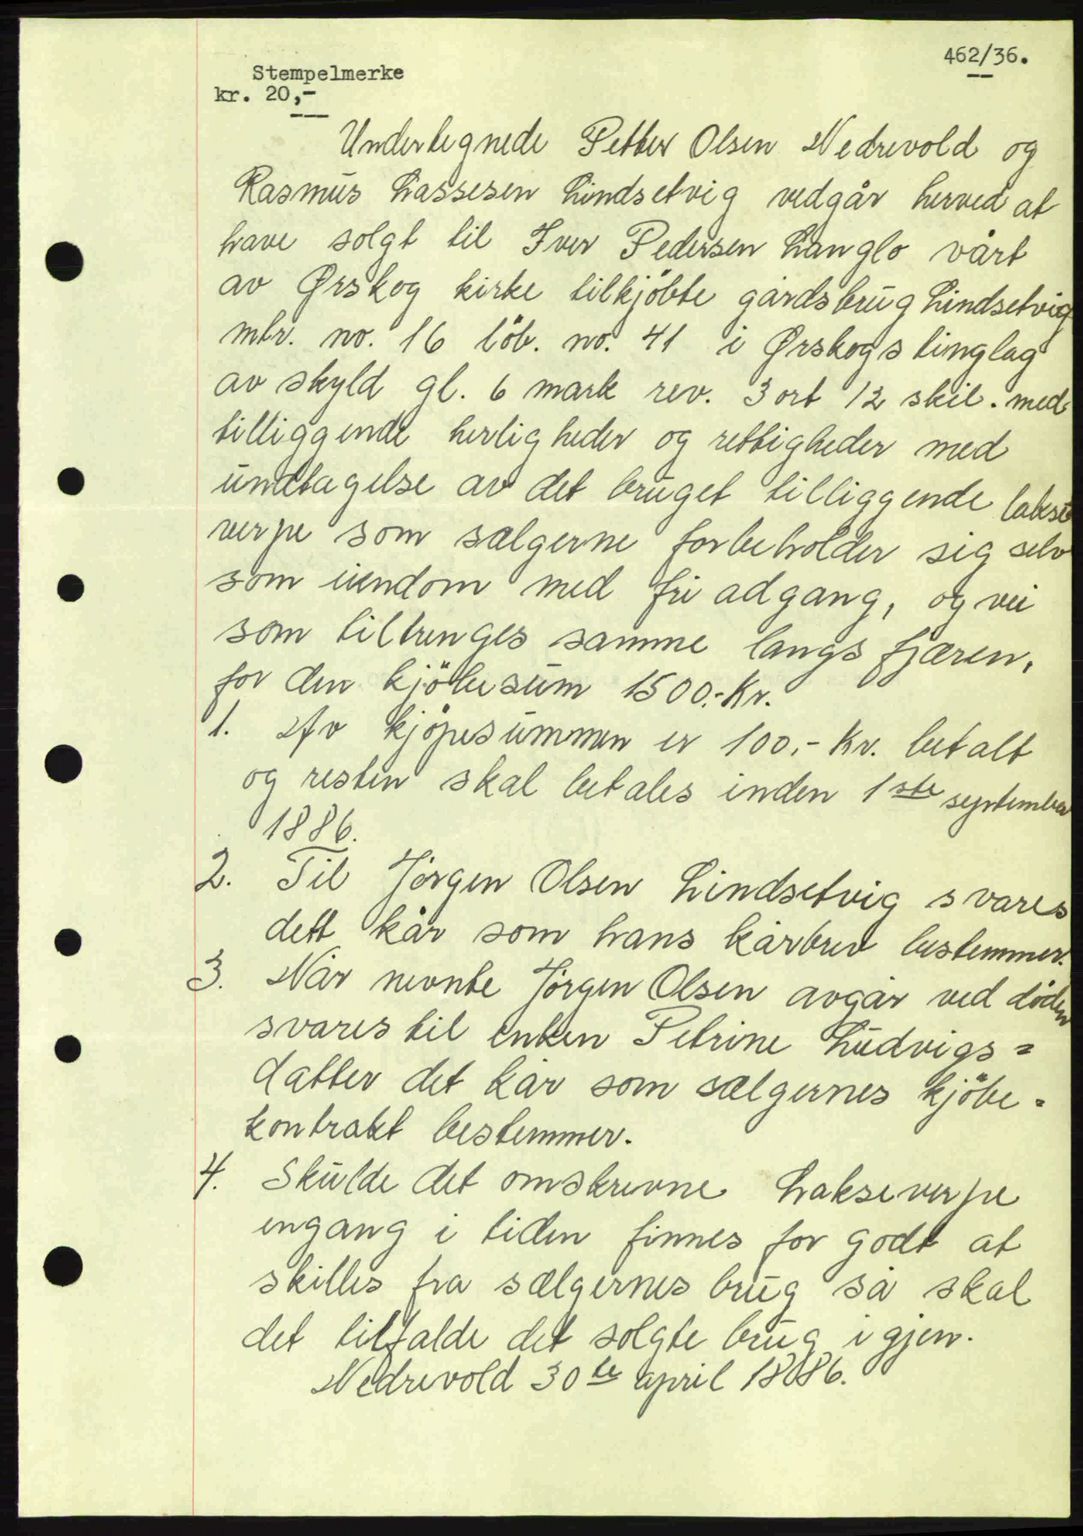 462/36.
Stempelmerke
kr. 20,-
Undertegnede Petter Olsen Nedrevold og
Rasmus Lassesen Lindsetvig vedgår herved at
have solgt til Iver Pedersen Langlo vårt
av Ørskog kirke tilkjöbte gårdsbrug Lindsetvig
mtr. no. 16 löb. no. 41 i Ørskogs tinglag
av skyld gl. 6 mark rev. 3 ort 12 skil. med
tilliggende herligheder og rettigheder med
undtagelse av det bruget tilliggende lakse
verpe som sælgerne forbeholder sig selv
som eiendom med fri adgang, og vei
som tiltrenges samme langs fjæren,
for den kjöbesum 1500.- Kr.
1. Av kjöpesummen er 100,- Kr. betalt
og resten skal betales inden 1ste september
1886.
2. Til Jörgen Olsen Lindsetvig svares
dett kår som hans kårbrev bestemmer.
3. Når nevnte Jörgen Olsen avgår ved döden
svares til enken Petrine Ludvigs=
datter det kår som sælgernes kjöbe=
kontrakt bestemmer.
4. Skulde det omskrevne Lakseverpe
engang i tiden finnes for godt at
skilles fra sælgernes brug så skal
det tilfalde det solgte brug igjen.
Nedrevold 30te april 1886.